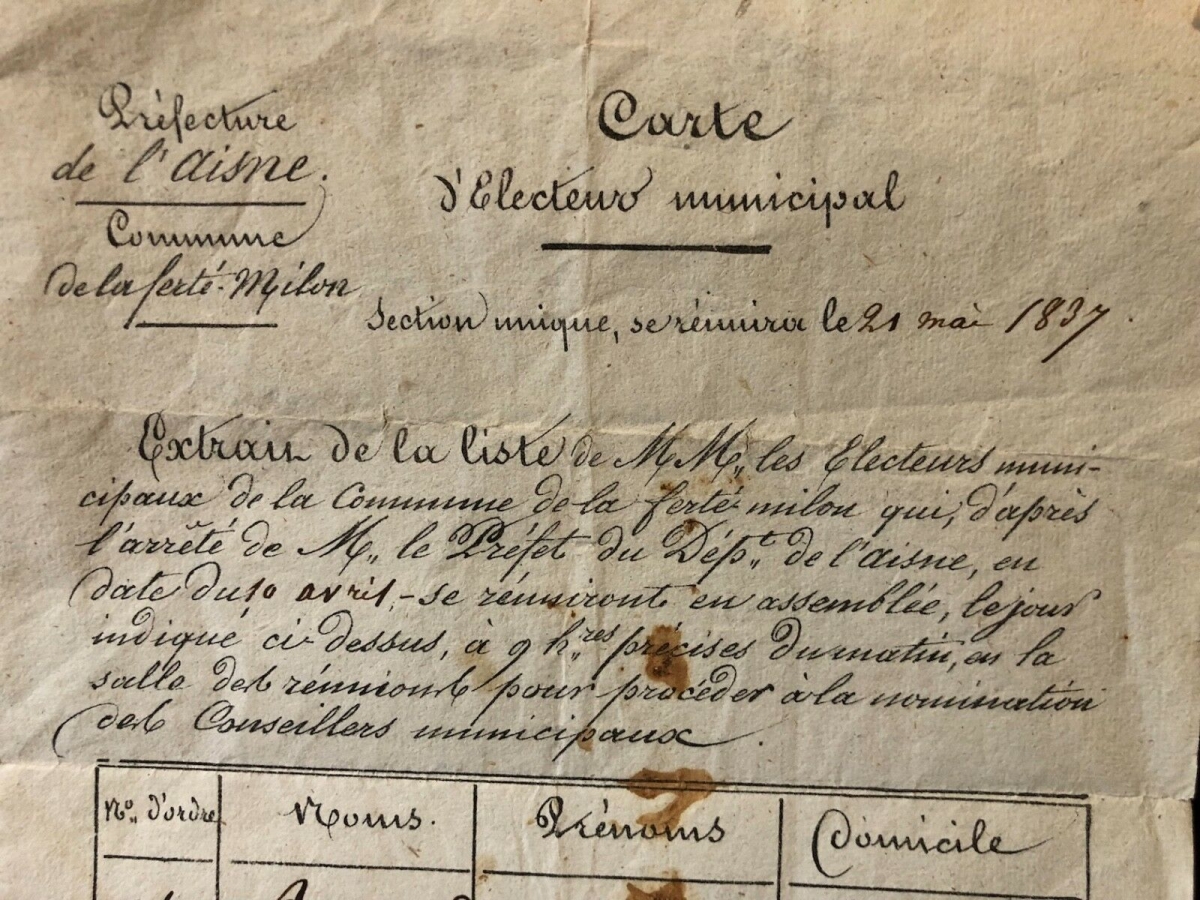 Préfecture
de l'aisne.
Commune
de la ferté-Milon
Carte
d'Electeur municipal
Section unique, se réunira le 21 mai 1837.
Extrait de la liste de MM,, les Electeurs muni-
cipaux de la Commune de la ferté-milon qui, d'après
l'arrêté de M,, le Préfet du Dép,,t de l'aisne, en
date du 10 avril,- se réuniront en assemblée, le jour
indiqué ci-dessus, à 9 h,,res précises du matin, en la
salle des réunions pour procéder à la nomination
des Conseillers municipaux.
No,, d'ordre Noms. Prénoms Domicile